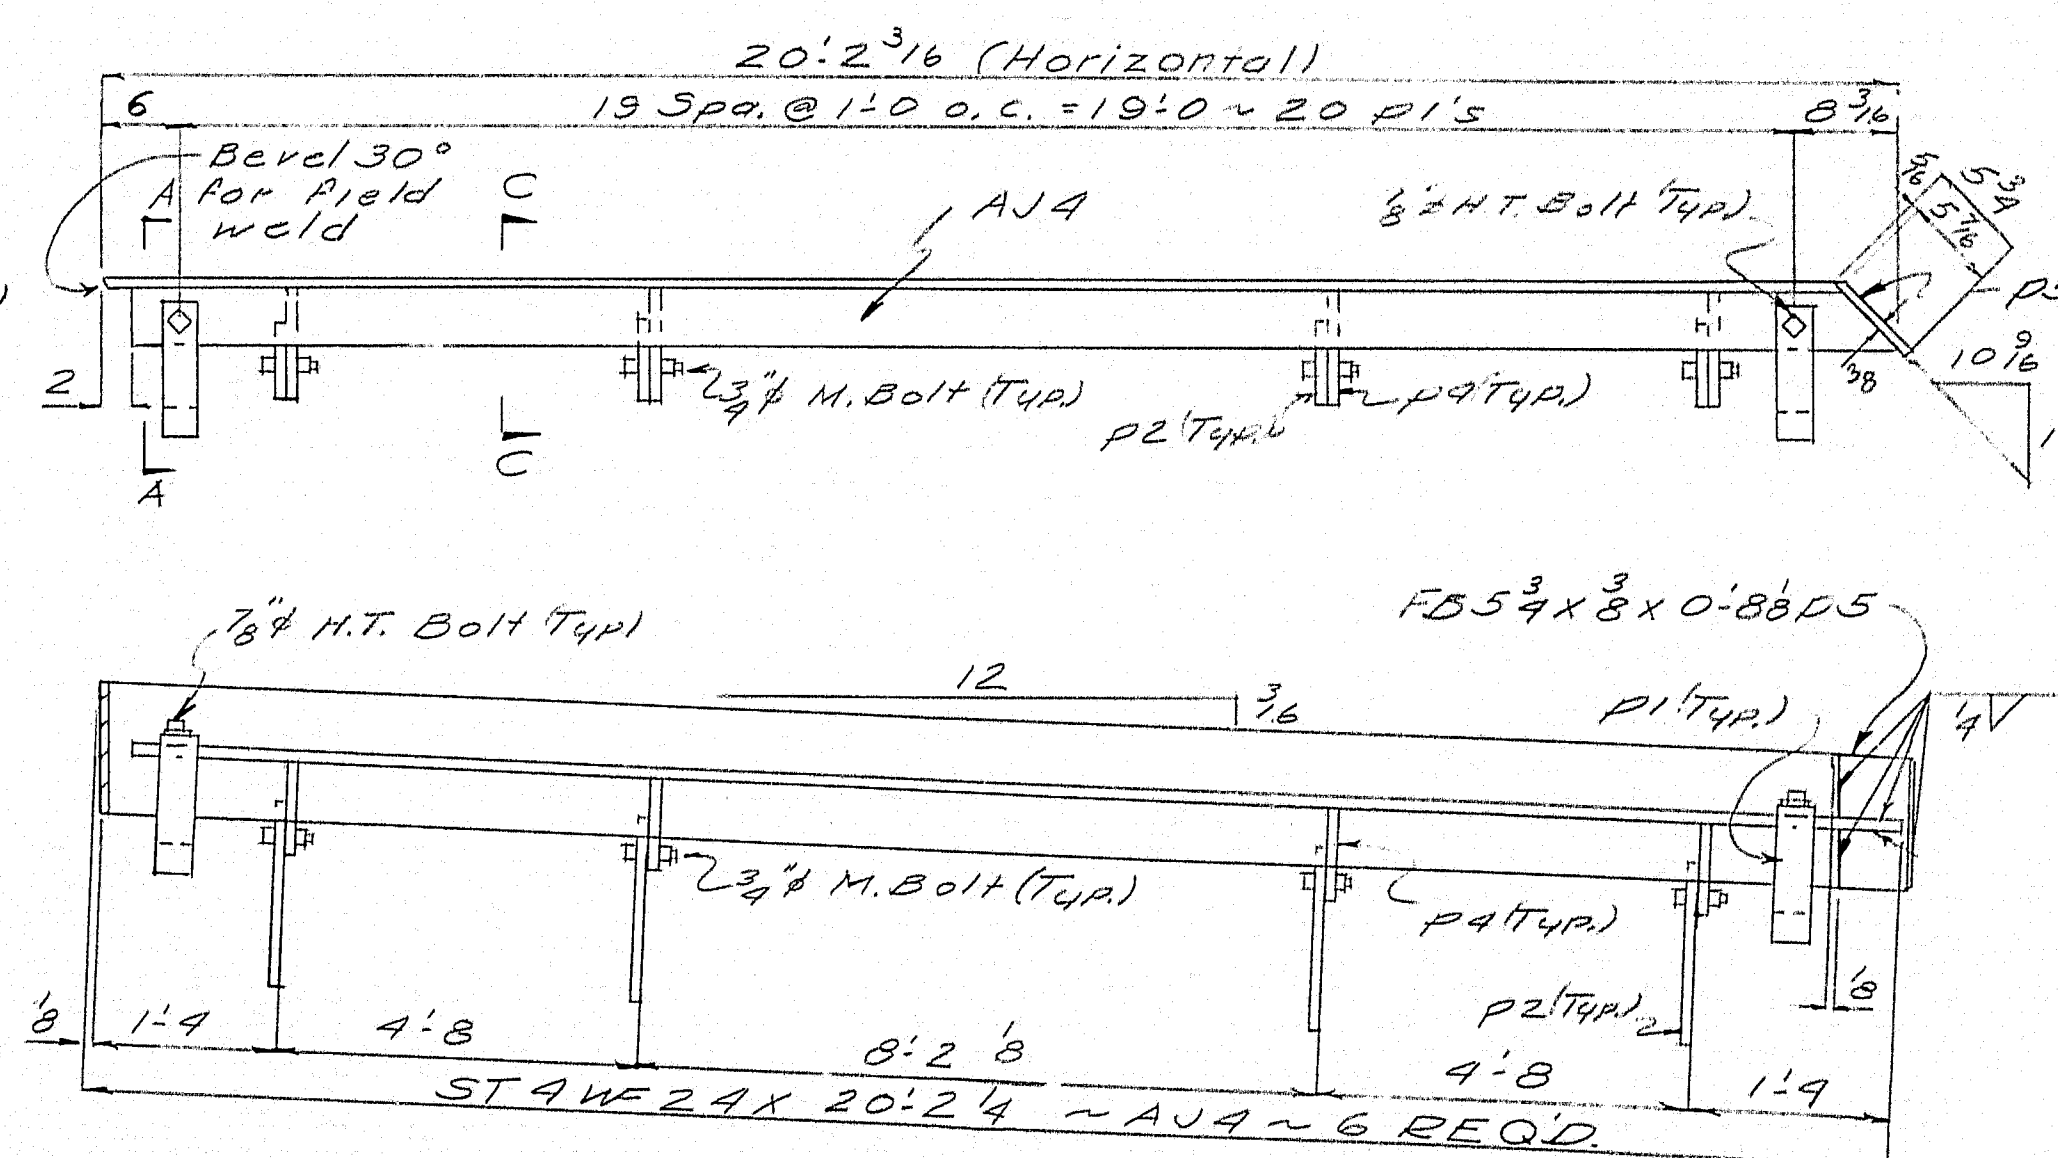 20'-2 3/16 (Horizontal)
6
19 Spa. @ 1'-0 o.c. = 19'-0 ~ 20 p1's
8 3/16
Bevel 30°
for field
weld
A
C
AJ4
H.T. Bolt (Typ)
5/16
5 3/4
5 7/16
10 9/16
3/8
1
2
3/4"ϕ M. Bolt (Typ.)
p2 (Typ.)
p4 (Typ.)
A
C
7/8"ϕ H.T. Bolt (Typ)
FB 5 3/4 x 3/8 x 0'-8 1/8 p5
12
3/16
p1 (Typ.)
1/4
3/4"ϕ M. Bolt (Typ.)
p4 (Typ.)
p2 (Typ.)
1/8
1/8
1'-4
4'-8
8'-2 1/8
4'-8
1'-4
ST 4 WF 24 x 20'-2 1/4 ~ AJ4 ~ 6 REQ'D.